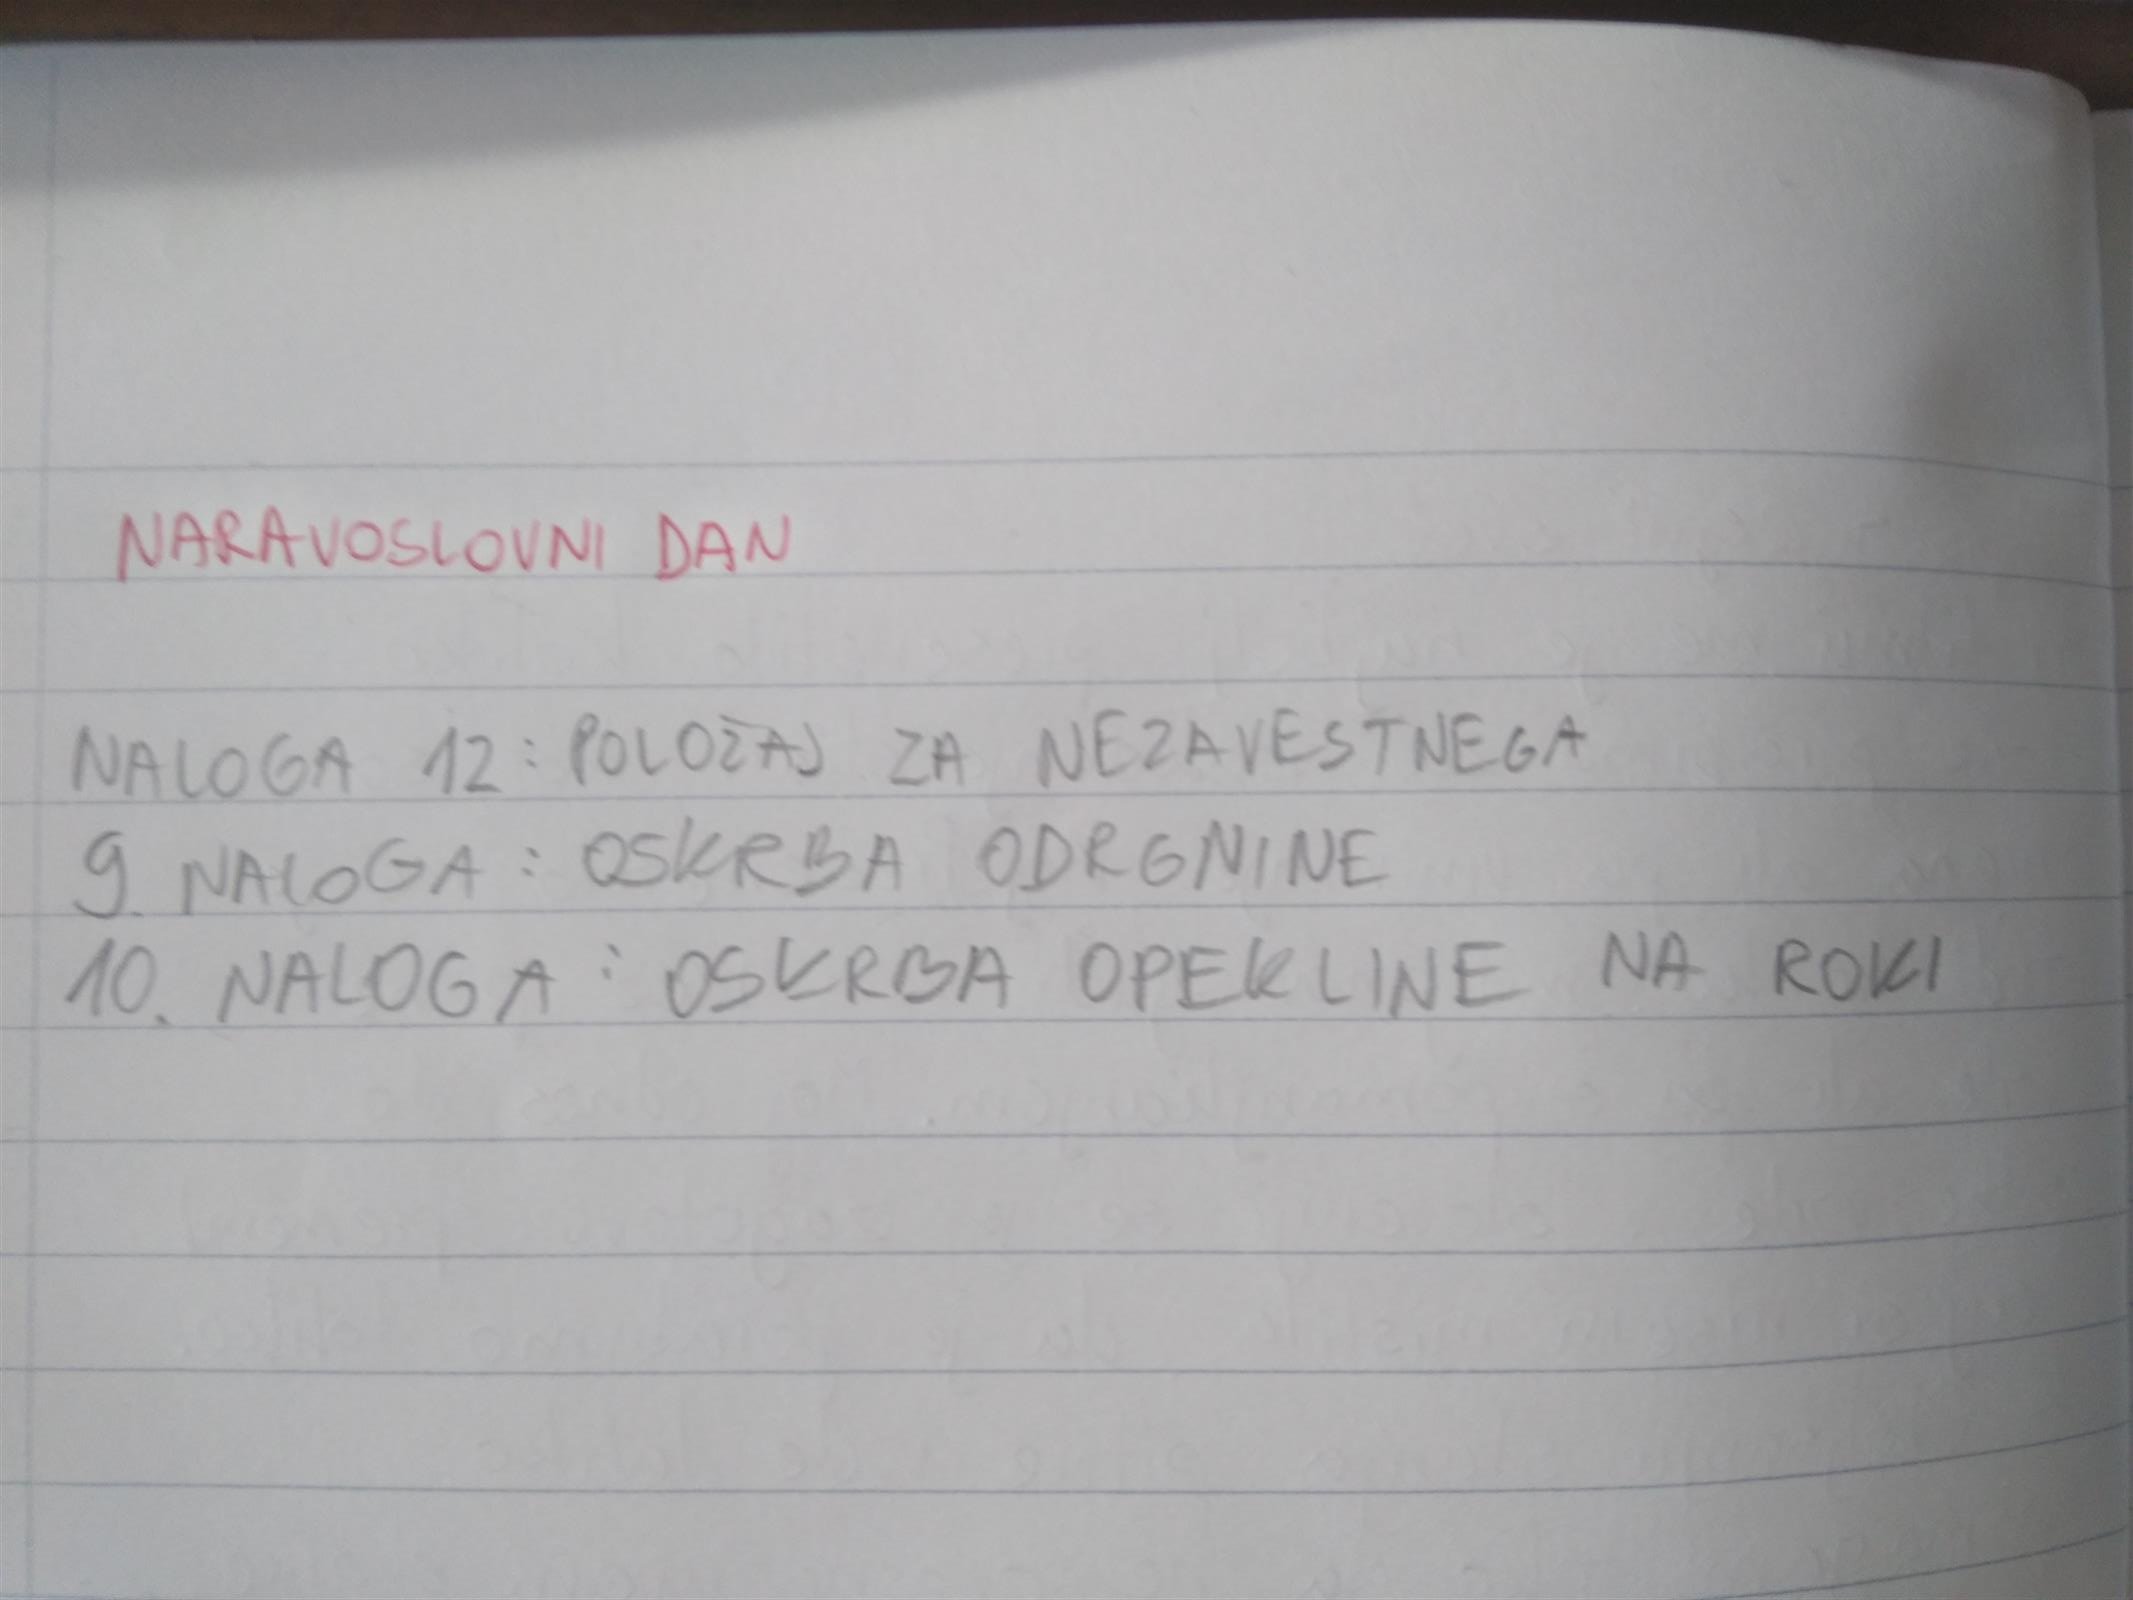 NARAVOSLOVNI DAN
NALOGA 12: POLOŽAJ ZA NEZAVESTNEGA
9. NALOGA: OSKRBA ODRGNINE
10. NALOGA: OSKRBA OPEKLINE NA ROKI